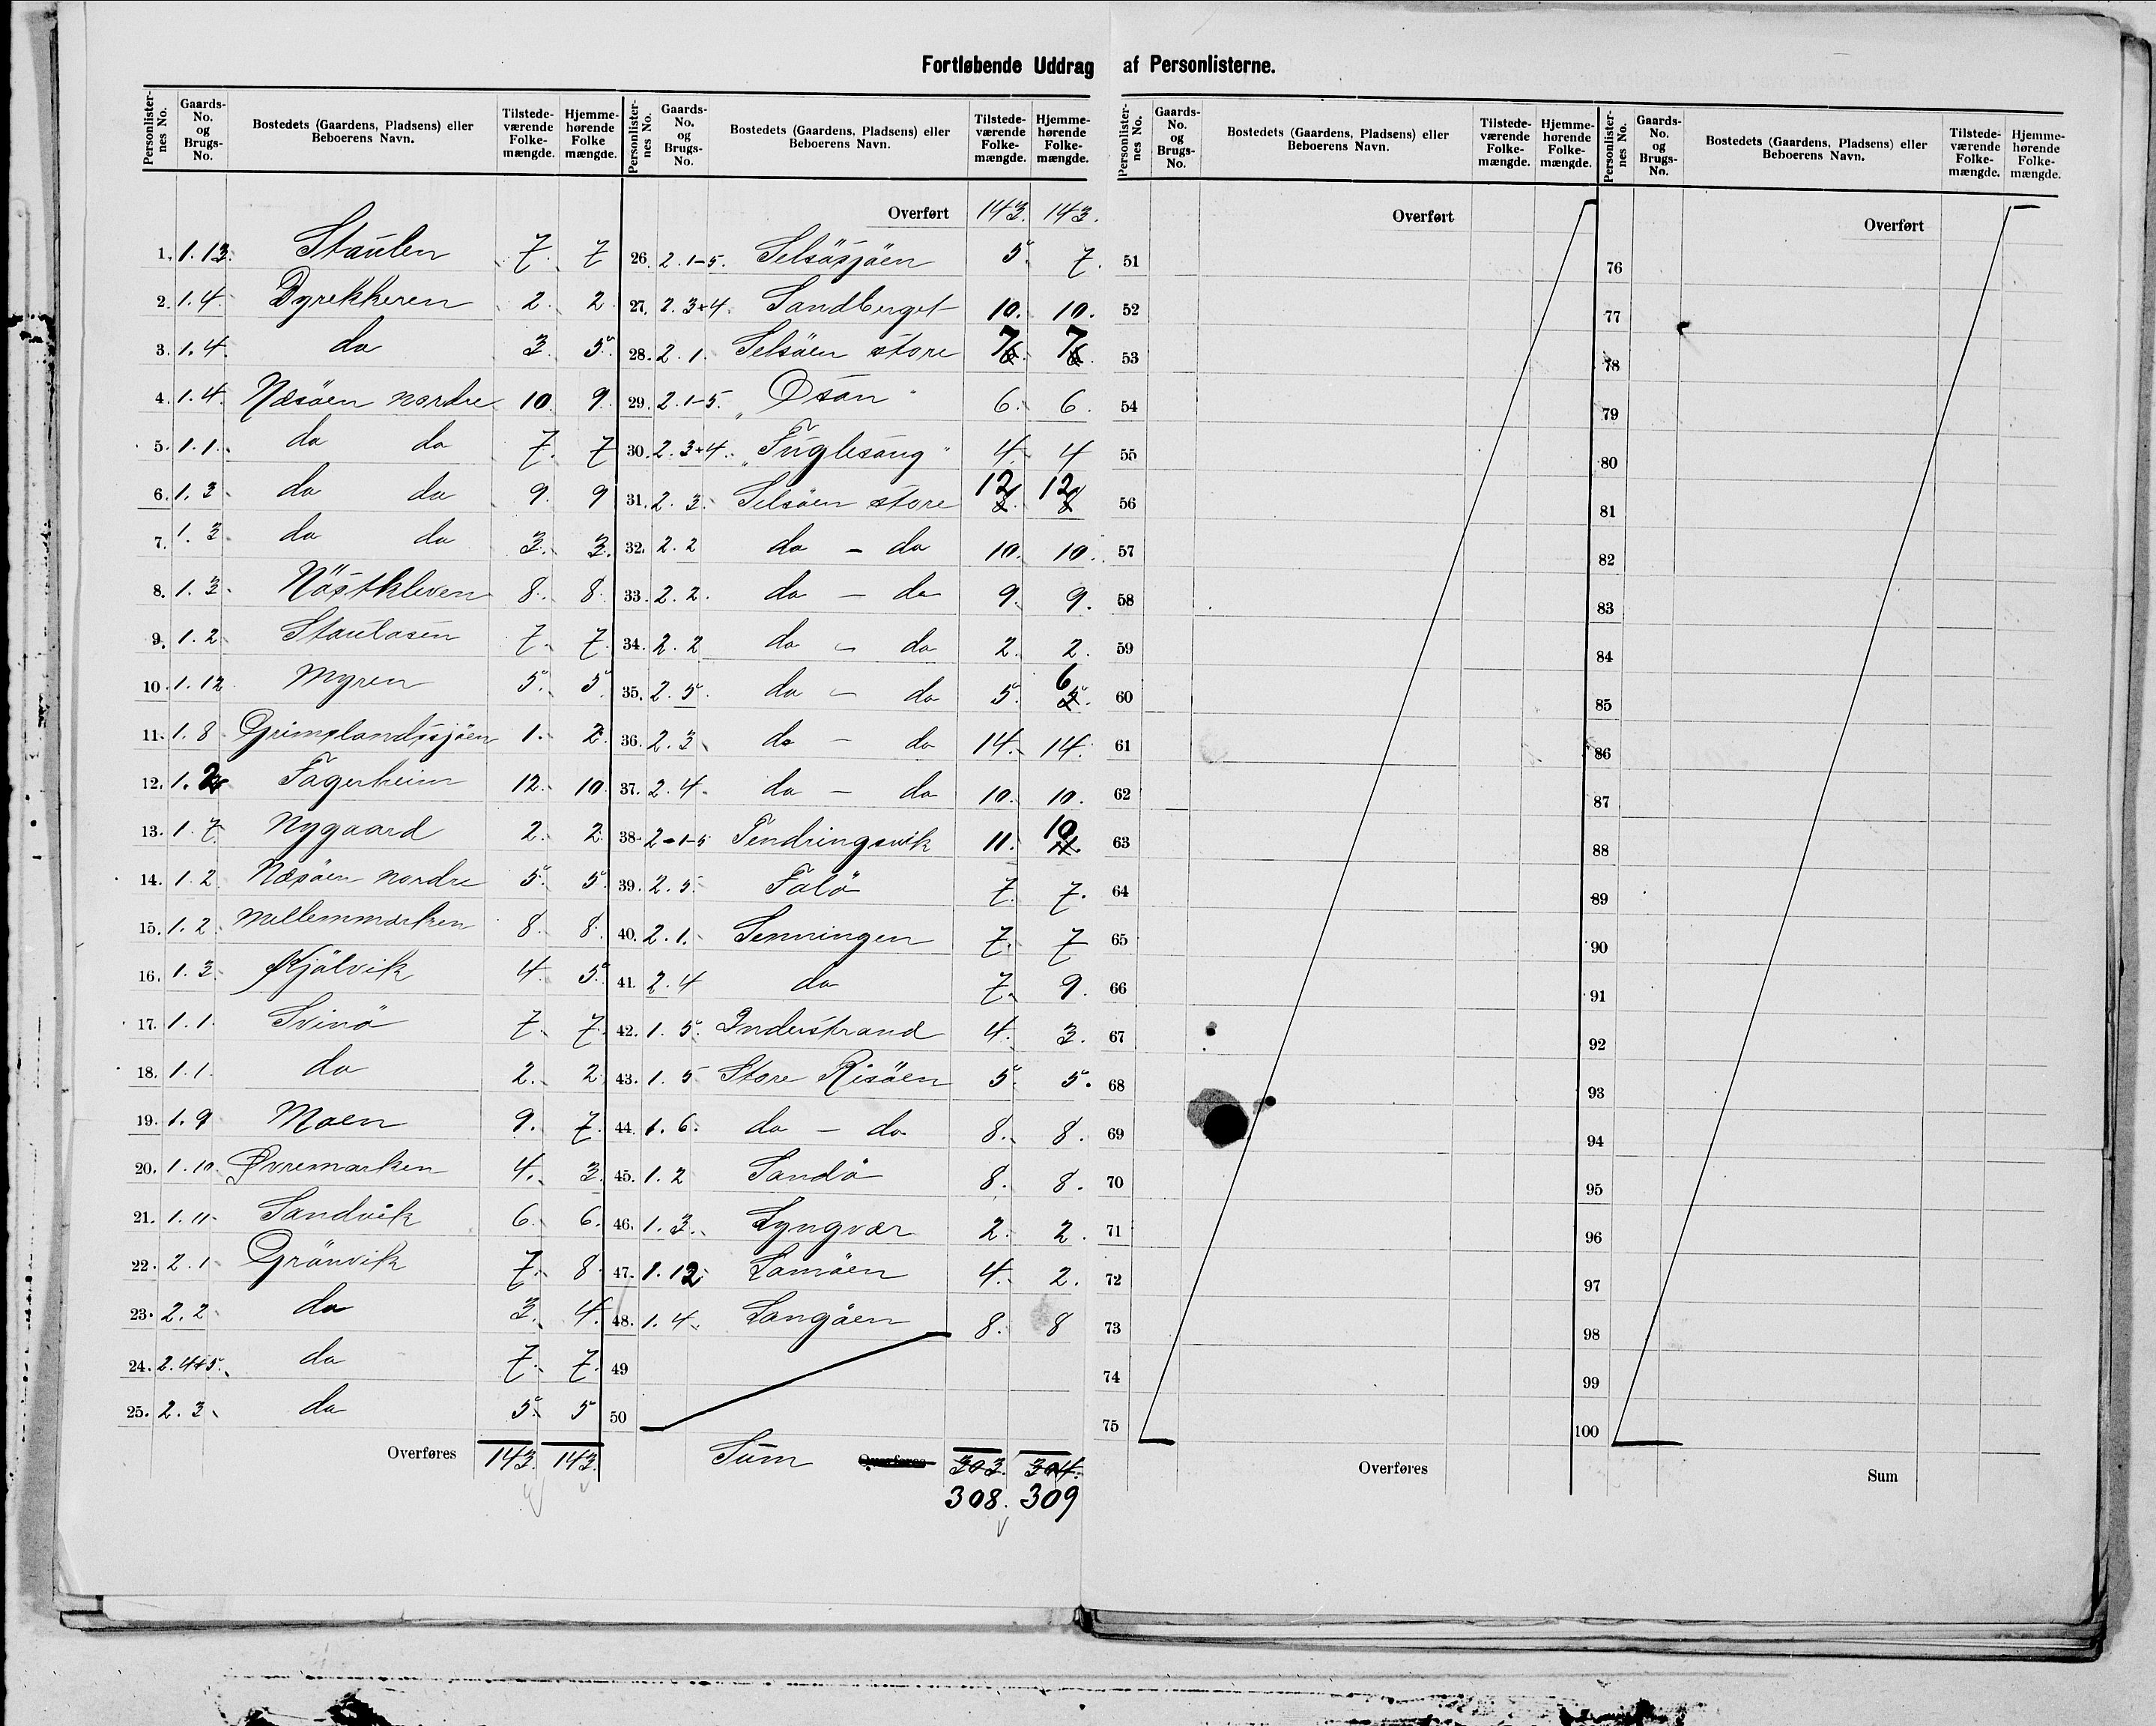 Fortløbende Uddrag af Personlisterne.
Personlisternes No. Gaards-No. og Brugs-No. Bostedets (Gaardens, Pladsens) eller Beboerens Navn. Tilstedeværende Folkemængde. Hjemmehørende Folkemængde.
1. 1.13. Staulen 7. 7
2. 1.4. Dyrekkeren 2. 2.
3. 1.4. do 3. 5.
4. 1.4. Næsöen nordre 10. 9.
5. 1.1. do do 7. 7
6. 1.3. do do 9. 9
7. 1.3 do do 3. 3.
8. 1.3. Nöstkleven 8. 8.
9. 1.2. Staulasen 7. 7.
10. 1.12. Myren 5. 5.
11. 1.8 Grimslandssjöen 1. 2.
12. 1.2 Fagerheim 12. 10.
13. 1.7. Nygaard 2. 2.
14. 1.2. Næsöen nordre 5. 5.
15. 1.2. Mellemmarken 8. 8.
16. 1.3. Kjölvik 4. 5.
17. 1.1. Svinö 7. 7.
18. 1.1. do 2. 2.
19. 1.9 Moen 9. 7.
20. 1.10. Øvremarken 4. 3.
21. 1.11. Sandvik 6. 6.
22. 2.1. Grönvik 7. 8.
23. 2.2. do 3. 4.
24. 2.4+5. do 7. 7.
25. 2.3. do 5. 5
Overføres 143. 143.
Personlisternes No. Gaards-No. og Brugs-No. Bostedets (Gaardens, Pladsens) eller Beboerens Navn. Tilstedeværende Folkemængde. Hjemmehørende Folkemængde.
Overført 143. 143.
26. 2.1-5. Selsösjöen 5. 7.
27. 2.3+4. Sandberget 10. 10.
28. 2.1. Selsöen store 7 7
29. 2.1-5. "Osan" 6. 6.
30. 2.3+4. "Fuglesang" 4. 4
31. 2.3. Selsöen store 12 12
32. 2.2 do - do 10. 10.
33. 2.2. do - do 9. 9.
34. 2.2 do - do 2. 2.
35. 2.5. do - do 5. 6
36. 2.3. do - do 14. 14.
37. 2.4. do - do 10. 10.
38. 2-1-5 Tendringsvik 11. 10
39. 2.5. Falö 7. 7.
40. 2.1. Senningen 7. 7
41. 2.4 do 7. 9.
42. 1.5. Inderstrand 4. 3.
43. 1.5 Store Risöen 5. 5.
44. 1.6. do - do 8. 8.
45. 1.2 Sandö 8. 8.
46. 1.3. Lyngvær 2. 2.
47. 1.12. Lamöen 4. 2.
48. 1.4. Langöen 8. 8
49
50
Sum Overføres 303. 304.
308. 309
Personlisternes No. Gaards-No. og Brugs-No. Bostedets (Gaardens, Pladsens) eller Beboerens Navn. Tilstedeværende Folkemængde. Hjemmehørende Folkemængde.
Overført
51
52
53
54
55
56
57
58
59
60
61
62
63
64
65
66
67
68
69
70
71
72
73
74
75
Overføres
Personlisternes No. Gaards-No. og Brugs-No. Bostedets (Gaardens, Pladsens) eller Beboerens Navn. Tilstedeværende Folkemængde. Hjemmehørende Folkemængde.
Overført
76
77
78
79
80
81
82
83
84
85
86
87
88
89
90
91
92
93
94
95
96
97
98
99
100
Sum